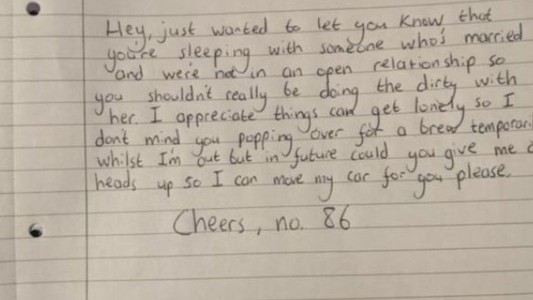 Hey, just wanted to let you know that
you're sleeping with someone who's married
and we're not in an open relationship so
you shouldn't really be doing the dirty with
her. I appreciate things can get lonely so I
don't mind you popping over for a brew temporari
whilst I'm out but in future could you give me a
heads up so I can move my car for you please.
Cheers, no. 86